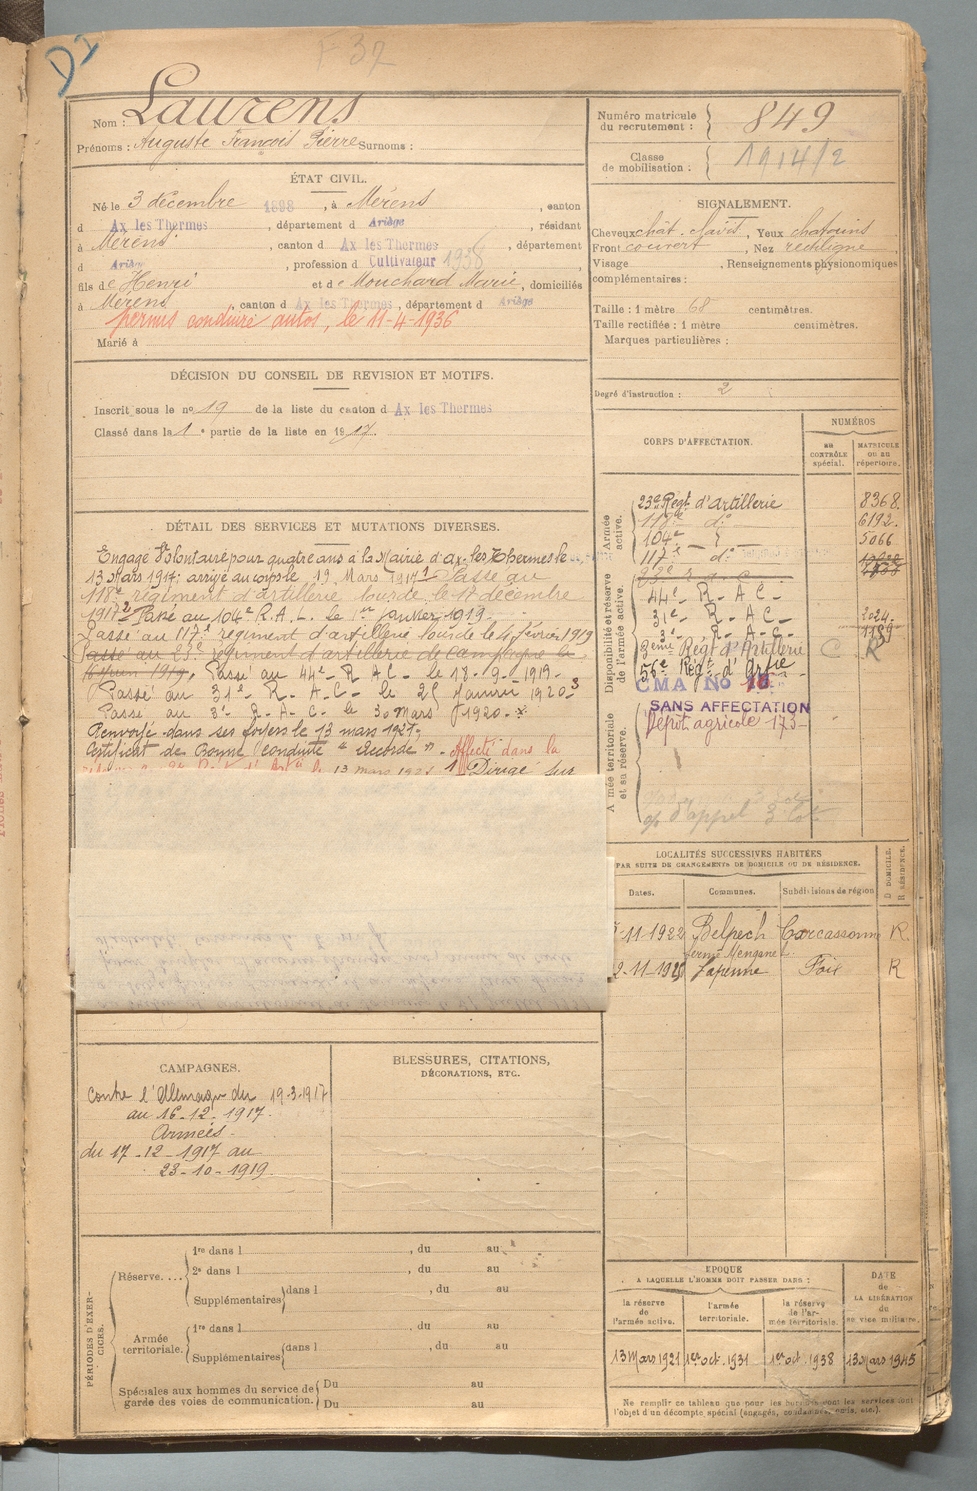 DI
F 37
Nom : Laurens
Prénoms : Auguste François Pierre Surnoms :
Numéro matricule du recrutement : 849
Classe de mobilisation : 1914/2
ÉTAT CIVIL.
Né le 3 décembre 1898, à Mérens, canton
d Ax les Thermes, département d Ariège, résidant
à Mérens, canton d Ax les Thermes, département
d Ariège, profession d Cultivateur 1938
fils de Henri et de Mouchard Marie, domiciliés
à Mérens, canton d Ax les Thermes, département d Ariège
permis conduire autos, le 11-4-1936
Marié à
SIGNALEMENT.
Cheveux chât. clairs, Yeux chatains
Front couvert, Nez rectiligne
Visage . Renseignements physionomiques
complémentaires :
Taille : 1 mètre 68 centimètres.
Taille rectifiée : 1 mètre centimètres.
Marques particulières :
Degré d'instruction : 2
DÉCISION DU CONSEIL DE REVISION ET MOTIFS.
Inscrit sous le no 19 de la liste du canton d Ax les Thermes
Classé dans la 1e partie de la liste en 1917.
DÉTAIL DES SERVICES ET MUTATIONS DIVERSES.
Engagé Volontaire pour quatre ans à la Mairie d'ax-les-Thermes le
13 Mars 1917; arrivé au corps le 19 Mars 1917 Passé au
118e régiment d'artillerie lourde le 17 décembre
1917 Passé au 104e R.A.L. le 1er janvier 1919
Passé au 117e régiment d'artillerie lourde le 4 février 1919
Passé au 23e régiment d'artillerie de campagne le
16 juin 1919, Passé au 44e RAC le 18-9-1919-
Passé au 31e R-A-C- le 25 Janvier 1920
Passé au 3e R-A-C- le 30 Mars 1920-
Renvoyé dans ses foyers le 13 mars 1921;
Certificat de Bonne Conduite "accordé". Affecté dans la
le 13 mars 1921 Dirigé sur
CORPS D'AFFECTATION.
NUMÉROS
au CONTRÔLE spécial.
MATRICULE ou au répertoire.
Armée active.
23e Regt d'artillerie 8368.
118e do 6192.
104e 5066
117e do
Disponibilité et réserve de l'armée active.
44e R-AC-
31e R-AC- 2024
3e R-A-C- 1189
3eme Régt d'Artillerie C R
56e Régt d'Artie
CMA No 18
SANS AFFECTATION
Armée territoriale et sa réserve.
Dépôt agricole 173-
d'appel 3
LOCALITÉS SUCCESSIVES HABITÉES
PAR SUITE DE CHANGEMENTS DE DOMICILE OU DE RÉSIDENCE.
Dates. Communes. Subdivisions de région D DOMICILE. R RÉSIDENCE.
-11-1922 Belpech Carcassonne R
ferme Mengane
-11-1925 Lapenne Foix R
CAMPAGNES.
Contre l'Allemagne du 19-3-1917
au 16-12-1917.
Armées-
du 17-12-1917 au
23-10-1919.
BLESSURES, CITATIONS,
DÉCORATIONS, ETC.
PÉRIODES D'EXERCICES.
Réserve....
1re dans l , du au
2e dans l , du au
Supplémentaires dans l , du au
Armée territoriale.
1re dans l , du au
Supplémentaires dans l , du au
Spéciales aux hommes du service de garde des voies de communication.
Du au
Du au
ÉPOQUE
A LAQUELLE L'HOMME DOIT PASSER DANS :
la réserve de l'armée active.
l'armée territoriale.
la réserve de l'armée territoriale.
DATE de LA LIBÉRATION du service militaire.
13 Mars 1921 1er oct. 1931 1er oct. 1938 13 Mars 1945
Ne remplir ce tableau que pour les hommes dont les services font
l'objet d'un décompte spécial (engagés, condamnés, omis, etc.).